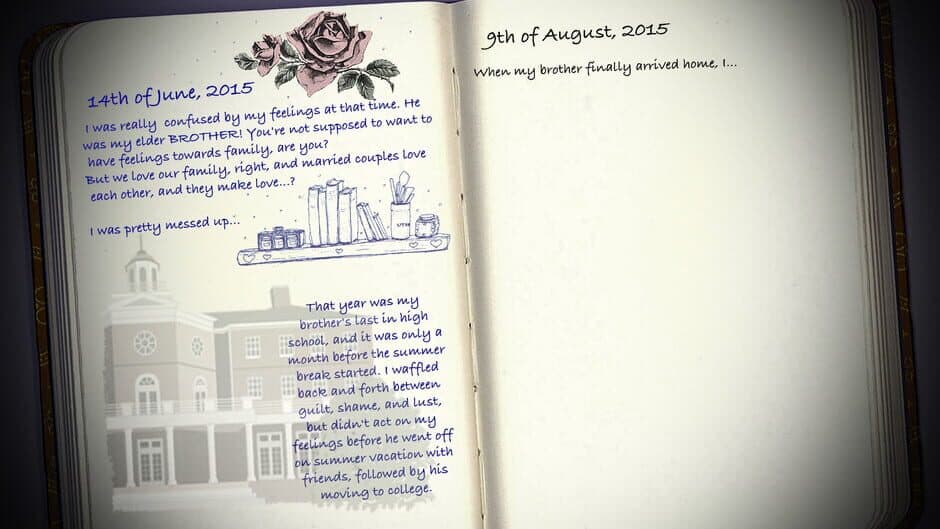 14th of June, 2015
I was really confused by my feelings at that time. He
was my elder BROTHER! You're not supposed to want to
have feelings towards family, are you?
But we love our family, right, and married couples love
each other, and they make love...?
I was pretty messed up...
That year was my
brother's last in high
school, and it was only a
month before the summer
break started. I waffled
back and forth between
guilt, shame, and lust,
but didn't act on my
feelings before he went off
on summer vacation with
friends, followed by his
moving to college.
9th of August, 2015
When my brother finally arrived home, I...